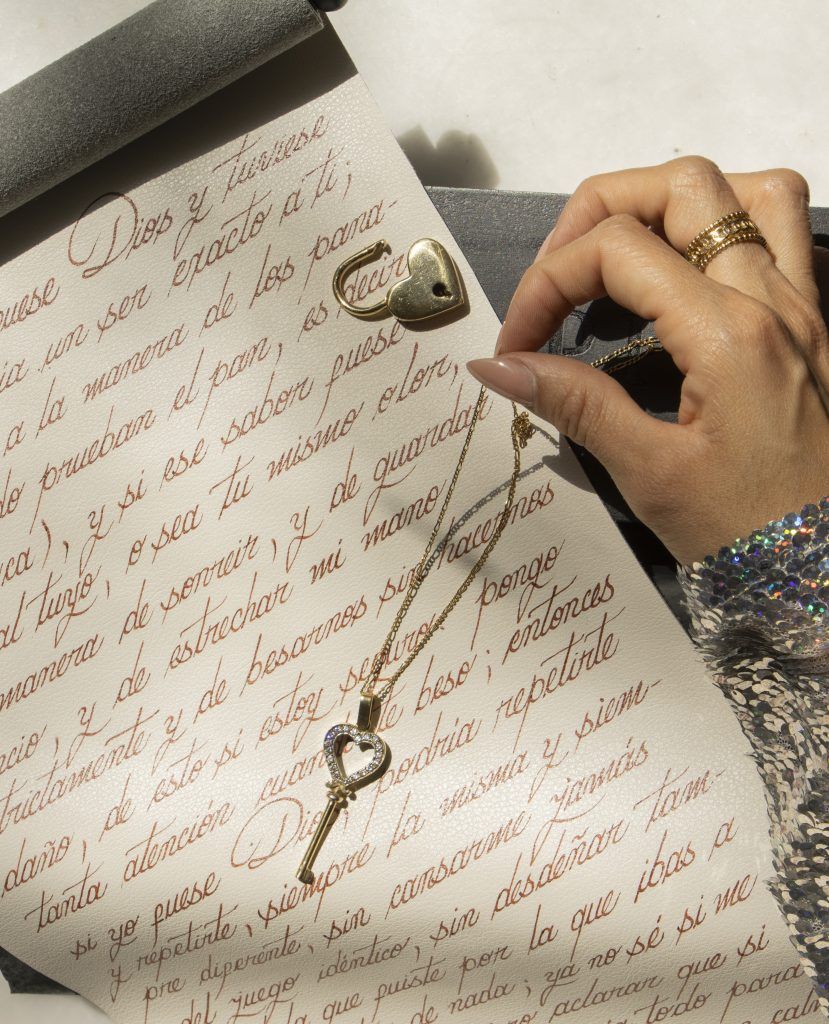 fuese Dios y tuviese
un ser exacto a ti;
a la manera de los pana-
prueban el pan, es decir
), y si ese sabor fuese
al tuyo, o sea tu mismo olor,
manera de sonreir, y de guardar
y de estrechar mi mano
y de besarnos sin hacernos
daño, de esto si estoy seguro pongo
tanta atención beso; entonces
si yo fuese Dios, podría repetirte
y repetirte, siempre la misma y siem-
pre diferente, sin cansarme jamás
del juego idéntico, sin desdeñar tam-
la que fuiste por la que ibas a
de nada; ya no sé si me
aclarar que si
todo para